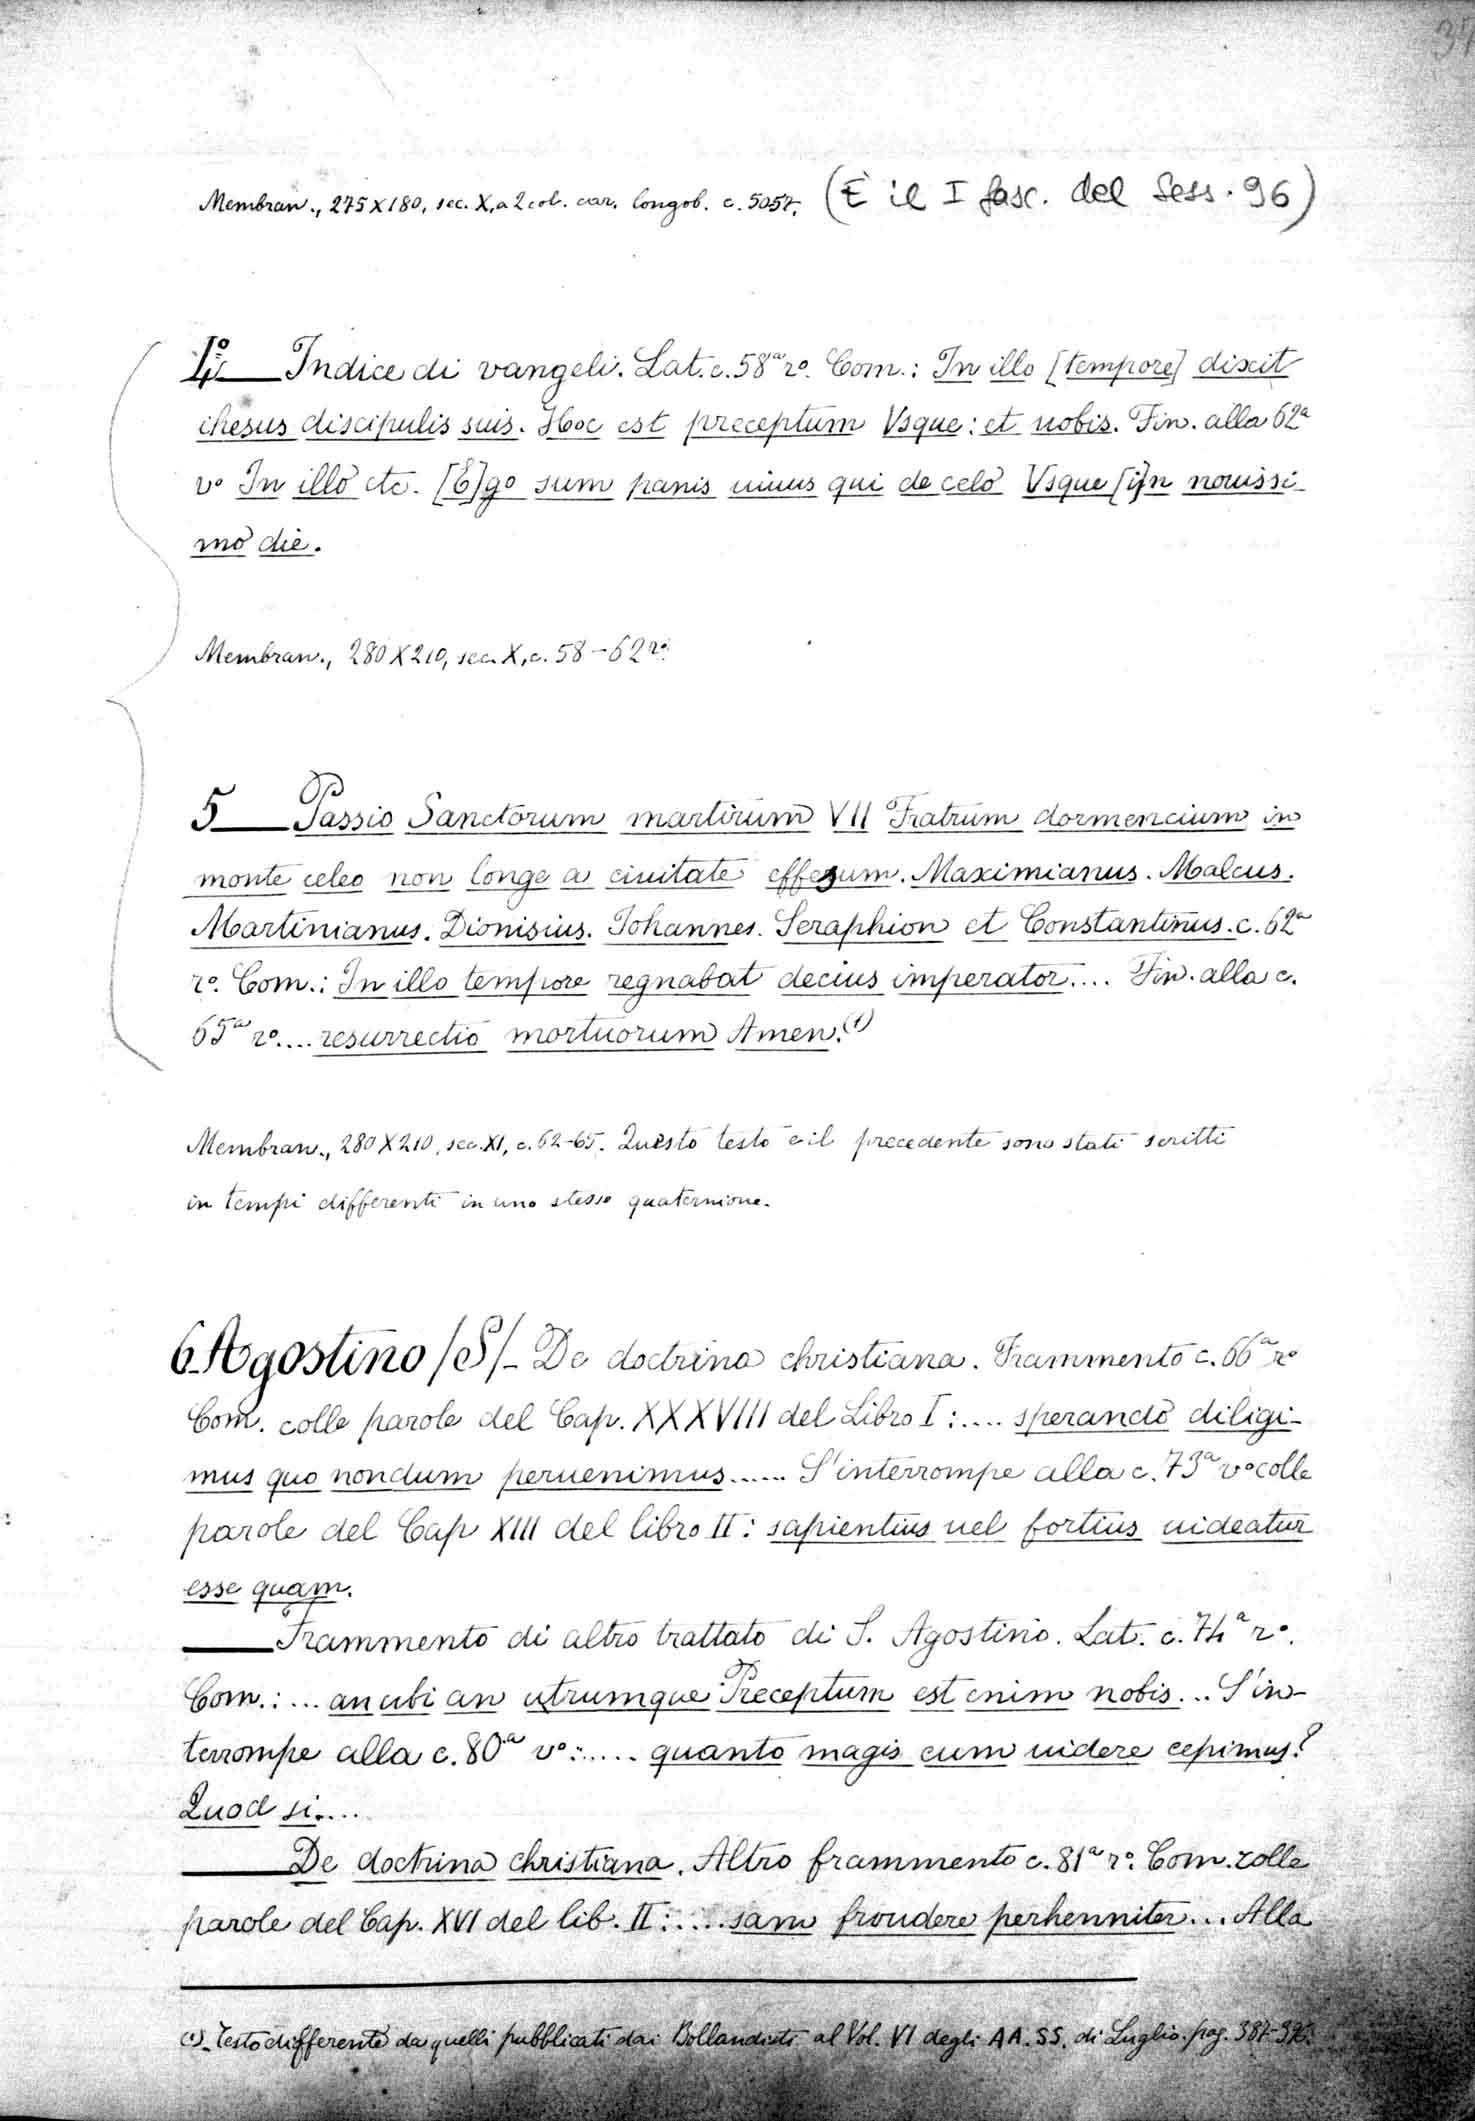 37
Membran., 275 X 180, sec. X, a 2 col. car. longob. c. 50-57. (È il I fasc. del Sess. 96)
4º Indice di vangeli. Lat. c. 58ª rº. Com.: In illo [tempore] dixit
ihesus discipulis suis. Hoc est preceptum Vsque: et uobis. Fin. alla 62ª
vº In illo etc. [E]go sum panis uiuus qui de celo Vsque [i]n nouissi-
mo die.
Membran., 280 X 210, sec. X, c. 58-62 rº.
5 Passio Sanctorum martirum VII Fratrum dormencium in
monte celeo non longe a ciuitate effesum. Maximianus. Malcus.
Martinianus. Dionisius. Iohannes. Seraphion et Constantinus. c. 62ª
rº. Com.: In illo tempore regnabat decius imperator.... Fin. alla c.
65ª rº.... resurrectio mortuorum Amen.(1)
Membran., 280 X 210, sec. XI, c. 62-65. Questo testo e il precedente sono stati scritti
in tempi differenti in uno stesso quaternione.
6. Agostino /S/- De doctrina christiana. Frammento c. 66ª rº
Com. colle parole del Cap. XXXVIII del Libro I:.... sperando diligi-
mus quo nondum peruenimus...... S'interrompe alla c. 73ª vº colle
parole del Cap XIII del libro II: sapientius uel fortius uideatur
esse quam.
Frammento di altro trattato di S. Agostino. Lat. c. 74ª rº.
Com.:... an ubi an utrumque Preceptum est enim nobis... S'in-
terrompe alla c. 80ª vº:..... quanto magis cum uidere cepimus?
Quod si....
De doctrina christiana. Altro frammento c. 81ª rº. Com. colle
parole del Cap. XVI del lib. II:.... sam froudere perhenniter... Alla
(1)- Testo differente da quelli pubblicati dai Bollandisti al Vol. VI degli AA. SS. di Luglio. pag. 387-396.